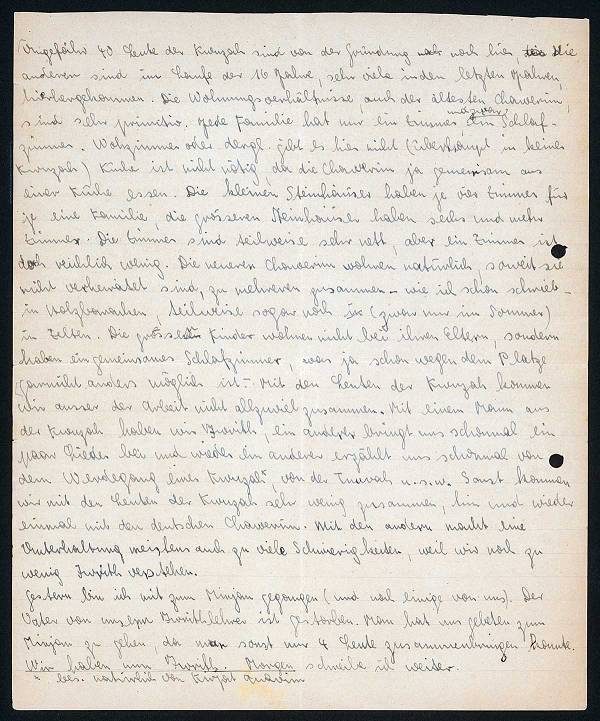 Ungefähr 40 Leute der Kwuzah sind von der Gründung noch hier, die
anderen sind im Laufe der 16 Jahre, sehr viele in den letzten Jahren,
hierhergekommen. Die Wohnungsverhältnisse, auch der ältesten Chawerim,
sind sehr primitiv. Jede Familie hat nur ein Zimmer und zwar ein Schlaf-
zimmer. Wohnzimmer oder dergl. gibt es hier nicht (überhaupt in keiner
Kwuzah) Küche ist nicht nötig, da die Chawerim ja gemeinsam aus
einer Küche essen. Die kleinen Steinhäuser haben je vier Zimmer für
je eine Familie, die grösseren Steinhäuser haben sechs und mehr
Zimmer. Die Zimmer sind teilweise sehr nett, aber ein Zimmer ist
doch reichlich wenig. Die neueren Chawerim wohnen natürlich, soweit sie
nicht verheiratet sind, zu mehreren zusammen – wie ich schon schrieb –
in Holzbaracken, teilweise sogar noch (zwar nur im Sommer)
in Zelten. Die Kinder wohnen nicht bei ihren Eltern, sondern
haben ein gemeinsames Schlafzimmer, was ja schon wegen dem Platze
garnicht anders möglich ist. – Mit den Leuten der Kwuzah kommen
wir ausser der Arbeit nicht allzuviel zusammen. Mit einem Mann aus
der Kwuzah haben wir Iwrith, ein anderer bringt uns schonmal ein
paar Lieder bei und wieder ein anderer erzählt uns schonmal von
dem Werdegang einer Kwuzah*, von der Tnuvah u.s.w. Sonst kommen
wir mit den Leuten der Kwuzah sehr wenig zusammen, hin und wieder
einmal mit den deutschen Chawerim. Mit den andern macht eine
Unterhaltung meistens auch zu viele Schwierigkeiten, weil wir noch zu
wenig Iwrith verstehen.
Gestern bin ich mit zum Minjan gegangen (und noch einige von uns). Der
Vater von unserm Iwrithlehrer ist gestorben. Man hat uns gebeten zum
Minjan zu gehen, da man sonst nur 4 Leute zusammenbringen konnte.
Wir haben nun Iwrith. Morgen schreibe ich weiter.
* bes. natürlich von Kwuzat